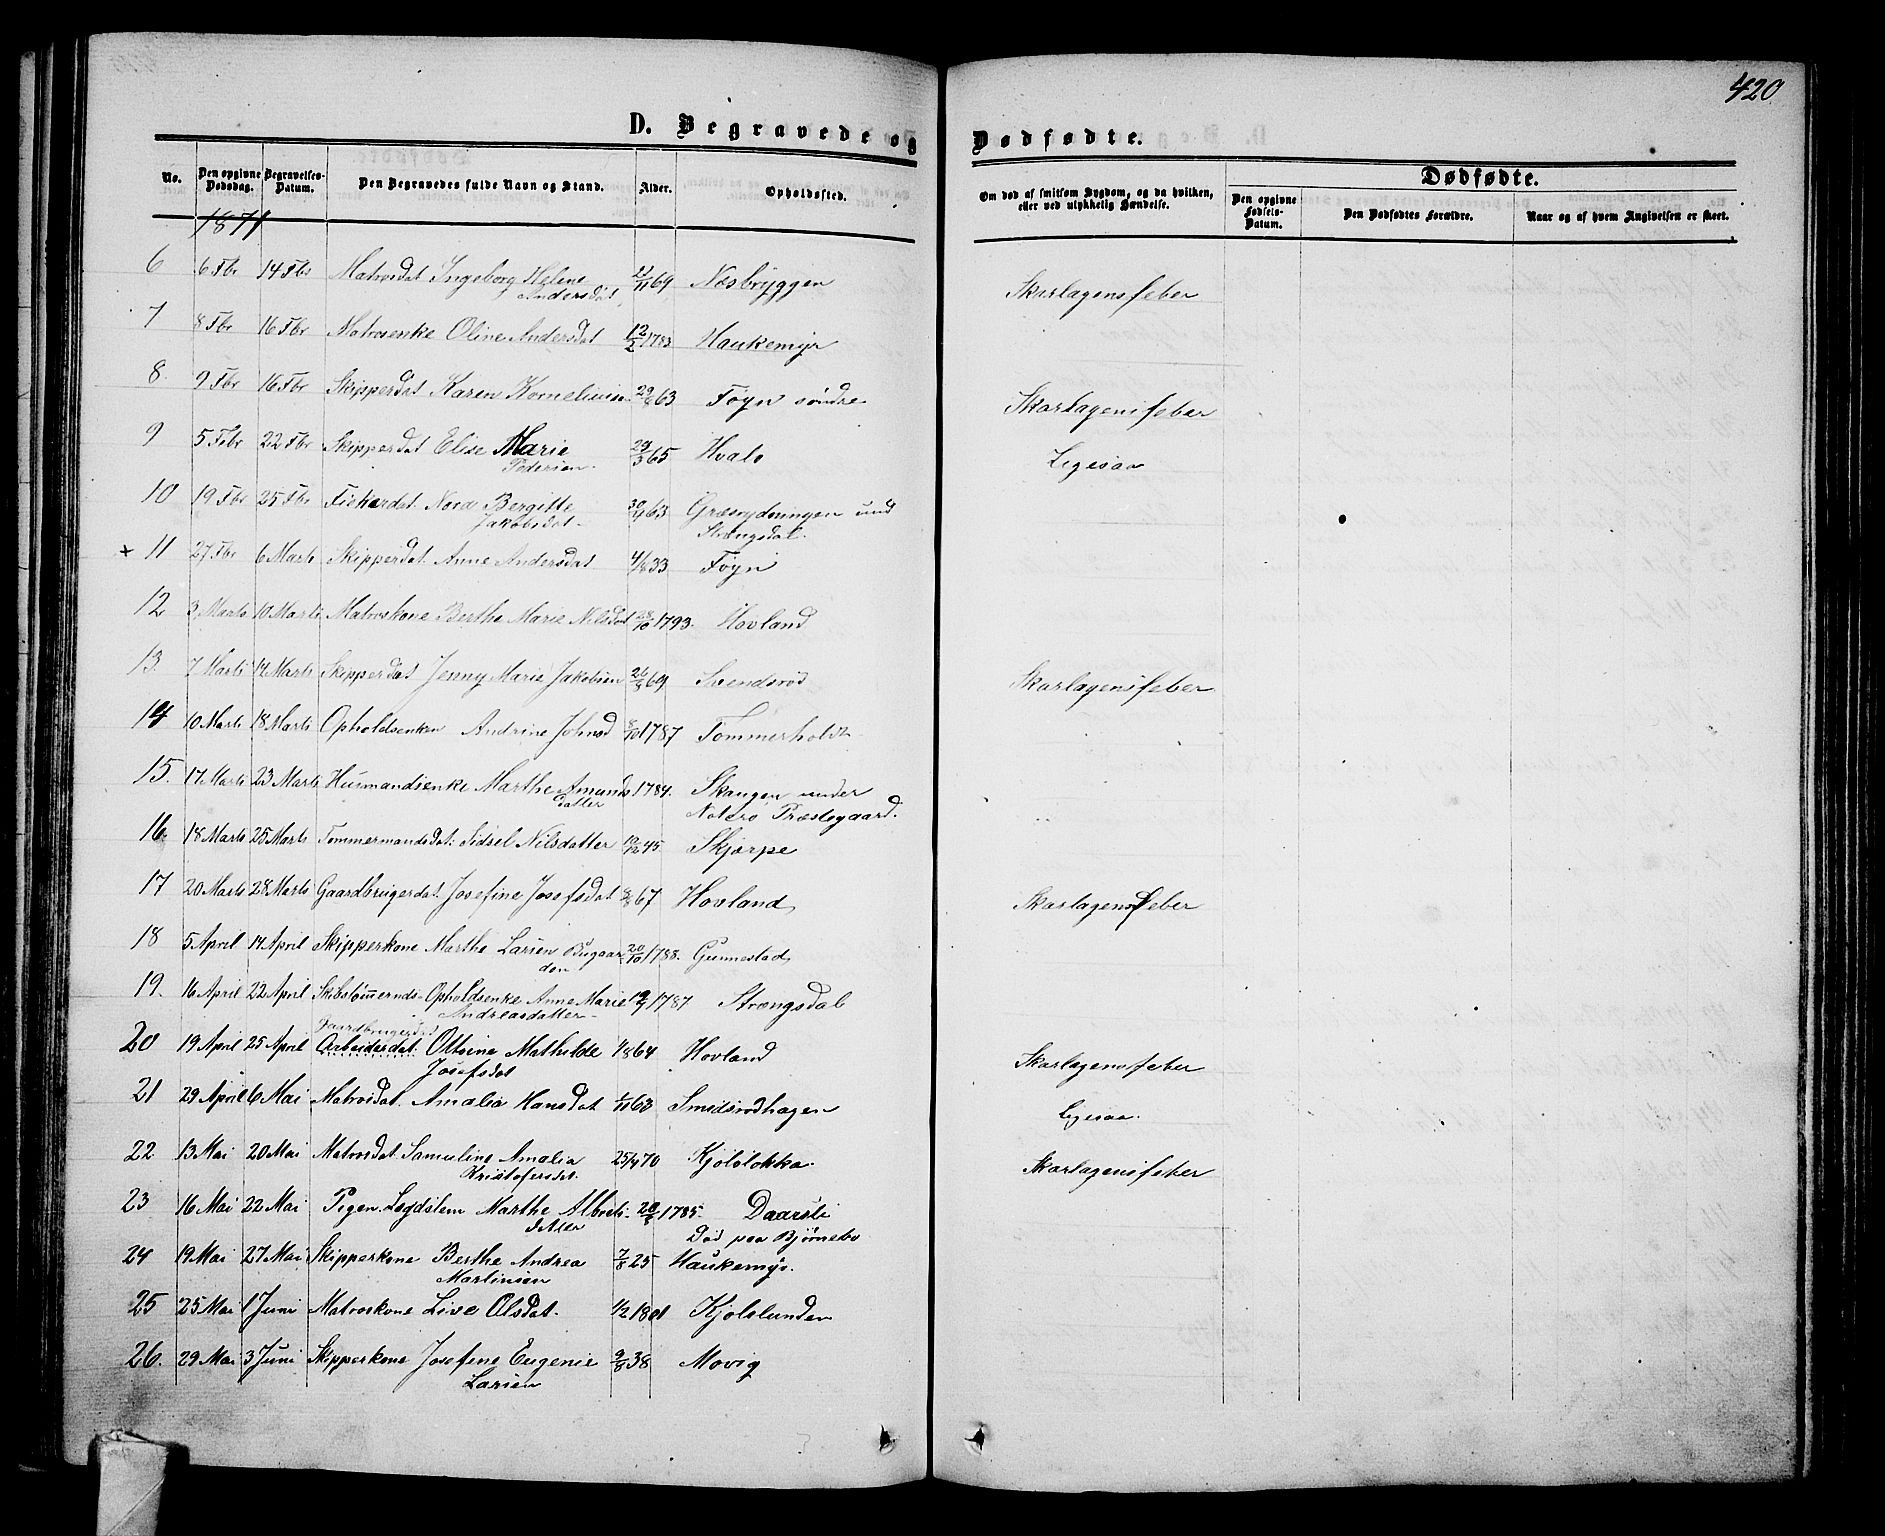 420
D. Begravede og Dødfødte.
No. Den opgivne Dødsdag. Begravelses-Datum. Den Begravedes fulde Navn og Stand. Alder. Opholdssted. Om død af smitsom Sygdom, og da hvilken, eller ved ulykkelig Hændelse. Dødfødte. Den opgivne Fødsels-Datum. Den Dødfødtes Forældre. Naar og af hvem Angivelsen er skeet.
1871
6 6 Fbr 14 Fbr Matrosdat Ingeborg Helene 69 Næsbryggen Skarlagensfeber
Andersdat
7 8 Fbr 16 Fbr Matrosenke Oline Andersdat 12/2 1783 Haukemyr
8. 9 Fbr 16 Fbr Skipperdat Karen Korneliusen 63 Føyn søndre Skarlagensfeber
9 5 Fbr 22 Fbr Skipperdat Elise Marie 29/3 65 Hvalø Ligesaa
Pedersen.
10 19 Fbr 25 Fbr Fiskerdat. Nora Bergitte 63 Græsrydningen und
Jakobsdat. Strængsdal.
+ 11 27 Fbr 6 Marts Skipperdat. Anne Andersdat 4/8 33 Føyn
12 3 Marts 10 Marts Matroskone Berthe Marie Nilsdat 28/10 1793. Hovland
13. 7 Marts 14 Marts Skipperdat Jenny Marie Jakobsen 69 Svendsrød Skarlagensfeber
14 10 Marts 18 Marts Opholdsenken Andrine Johnsd 8/10 1787 Tømmerholt
15. 17 Marts 23 Marts Husmandsenke Marthe Amunds 1784. Skaugen under
datter Nøterø Præstegaard.
16. 18 Marts 25 Marts Tømmermandsdat: Sidsel Nilsdatter 19/12 45 Skjærpe
17 20 Marts 28 Marts Gaardbrugerdat. Josefine Josefsdat 67 Hovland Skarlagensfeber
18 5 April 14 April Skipperkone Marthe Larsen Bugaar 20/10 1788. Gunnestad
den
19. 16 April 22 April Skibstømmermds- Opholdsenke Anne Marie 1787 Strængsdal
Andreasdatter
Gaardbrugerdat
20 19 April 25 April Arbeiderdat. Ottine Mathilde 1/8 64 Hovland Skarlagensfeber
Josefsdat
21 29 April 6 Mai Matrosdat. Amalia Hansdat 1/11 63 Smidsrødhagen Ligesaa.
22 13 Mai 20 Mai Matrosdat. Samuline Amalia 25/4 70 Kjøløløkka. Skarlagensfeber
Kristofersdat.
23 16 Mai 22 Mai Pigen. Lægdslem Marthe Alberts- 1785 Daarsti
datter Død paa Bjørnebo
24 19 Mai 27 Mai Skipperkone Berthe Andrea 7/8 25 Haukemyr.
Martinsen
25 25 Mai 1 Juni Matroskone Live Olsdat. 1/2 1801 Kjølølunden
26. 29 Mai 3 Juni Skipperkone Josefine Eugenie 9/8 38 Movig
Larsen